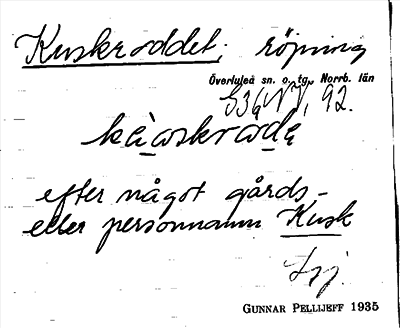 Kuskroddet; röjning
Överluleå sn. o. tg., Norrb. län
S36 NV, 92.
efter något gårds-
eller personnamn Kusk
GUNNAR PELLIJEFF 1935